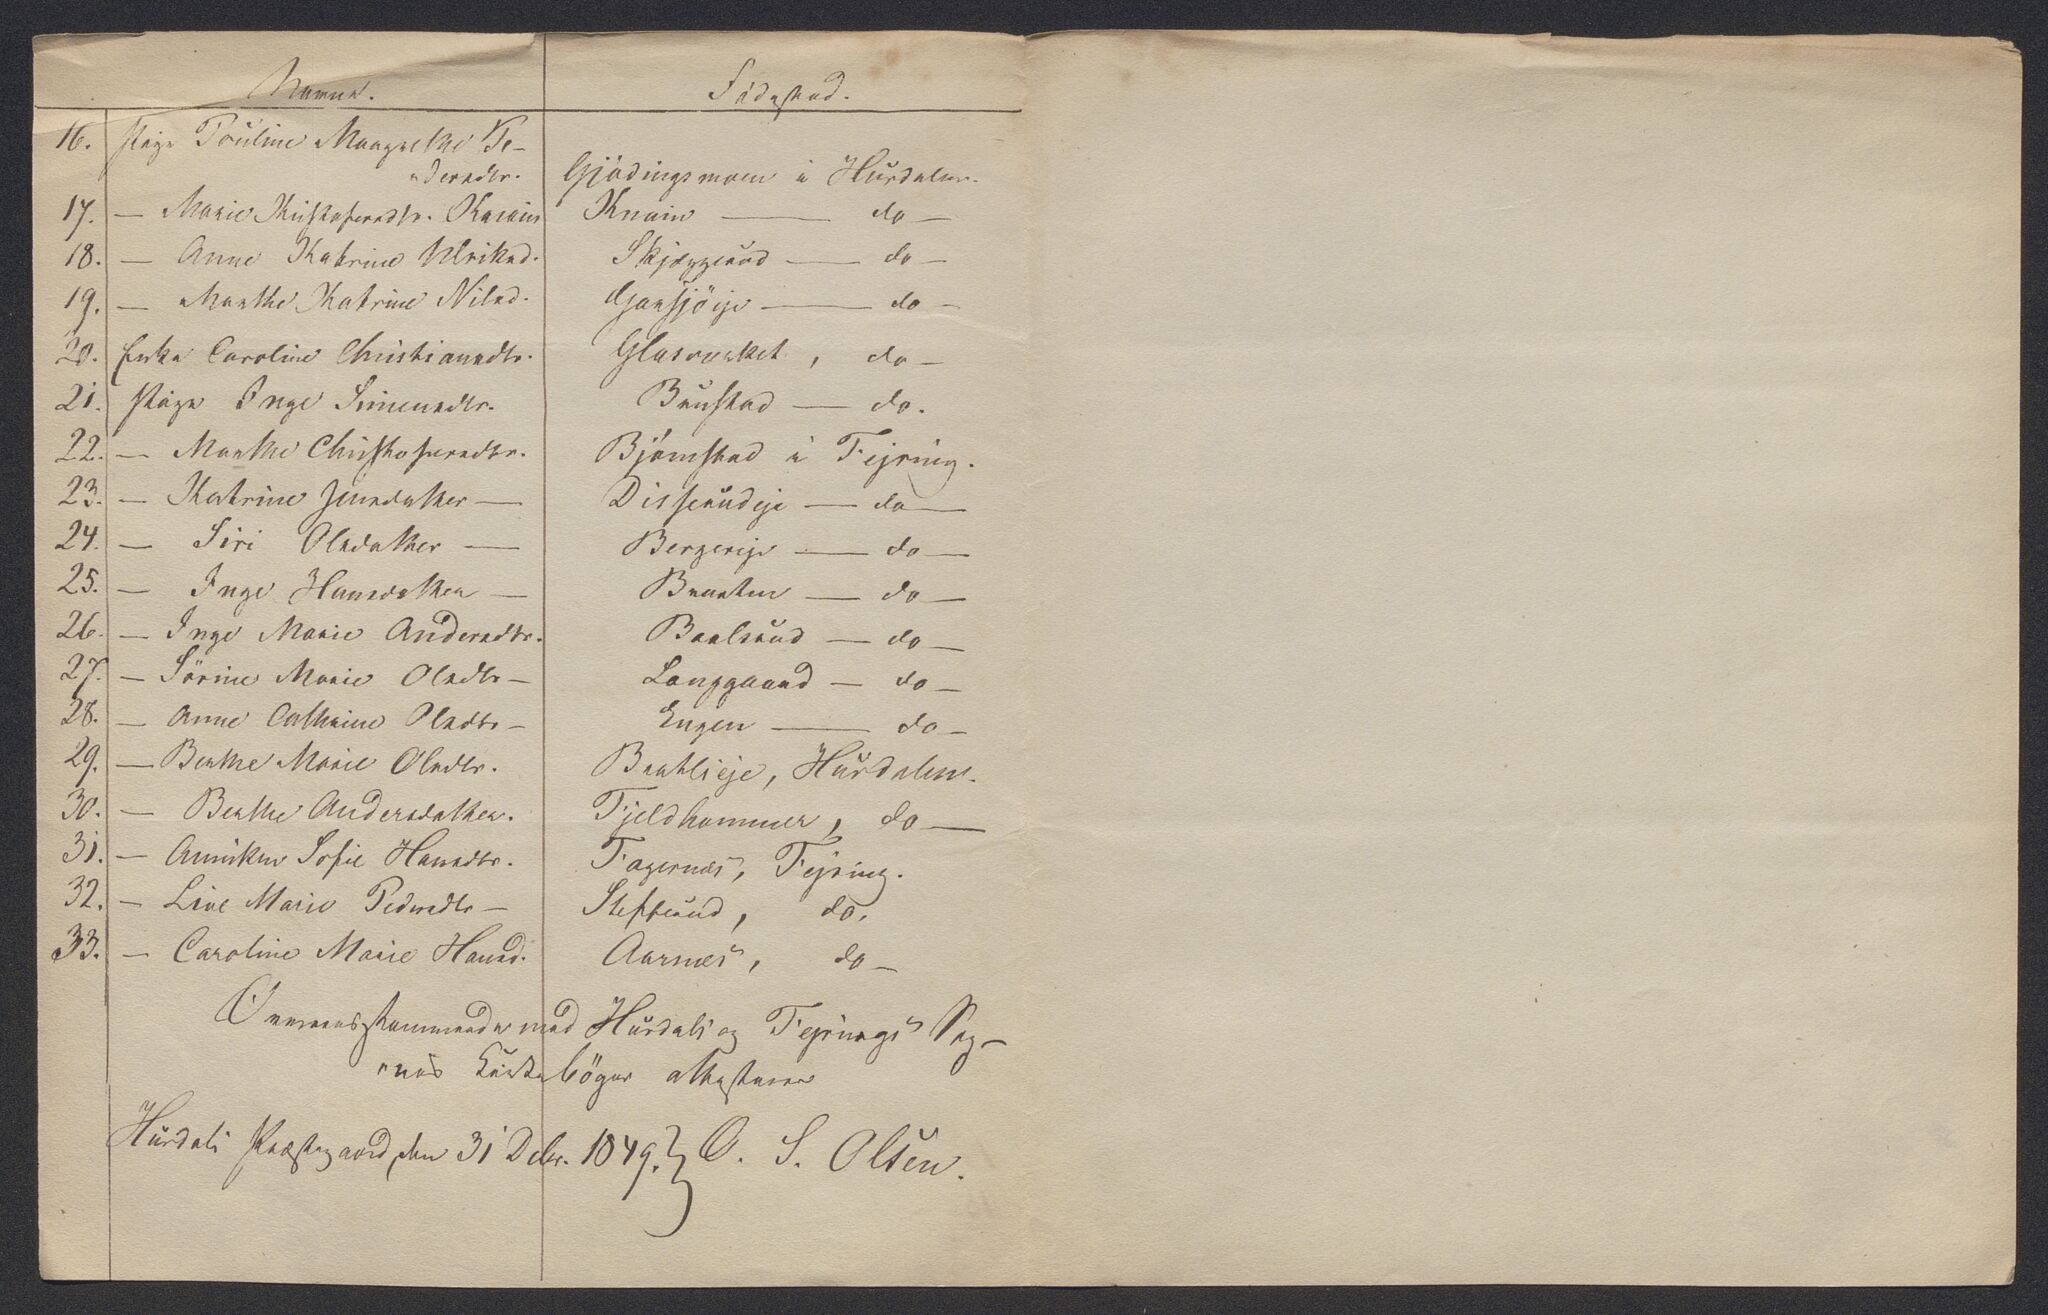 Navne. Födested.
16. Pige Pouline Margrethe Pe-
dersdtr. Gjödingsmoen i Hurdalen.
17. — Marie Kristofersdtr. Knain Knain — do —
18. — Anne Katrine Ulriksd. Skjæggerud — do —
19. — Marthe Katrine Nilsd. Garsjöeje — do —
20. Enke Caroline Christiansdtr. Glasværket, do —
21. Pige Inge Simensdtr. Brustad — do.
22. — Marthe Christofersdtr. Björnstad i Fejring.
23. — Katrine Jensdatter — Disserudeje — do —
24. — Siri Olsdatter — Bergereje — do —
25. — Inge Hansdatter — Braaten — do —
26. — Inge Marie Andersdtr. Baalsrud — do —
27. — Sörine Marie Olsdtr — Langgaard — do —
28. — Anne Cathrine Olsdtr — Engen — do —
29. — Berthe Marie Olsdtr. Bratlieje, Hurdalen.
30. — Berthe Andersdatter. Fjeldhammer, do —
31. — Anniken Sofie Hansdtr. Fagernæs, Fejring.
32. — Live Marie Pedersdtr — Stefferud, do.
33. — Caroline Marie Hansd. Aarnæs, do —
Overensstemmende med Hurdals og Fejrings Sog-
nes Kirkeböger attesterer
Hurdals Præstegaard, den 31 Decbr. 1849. O. S. Olsen.